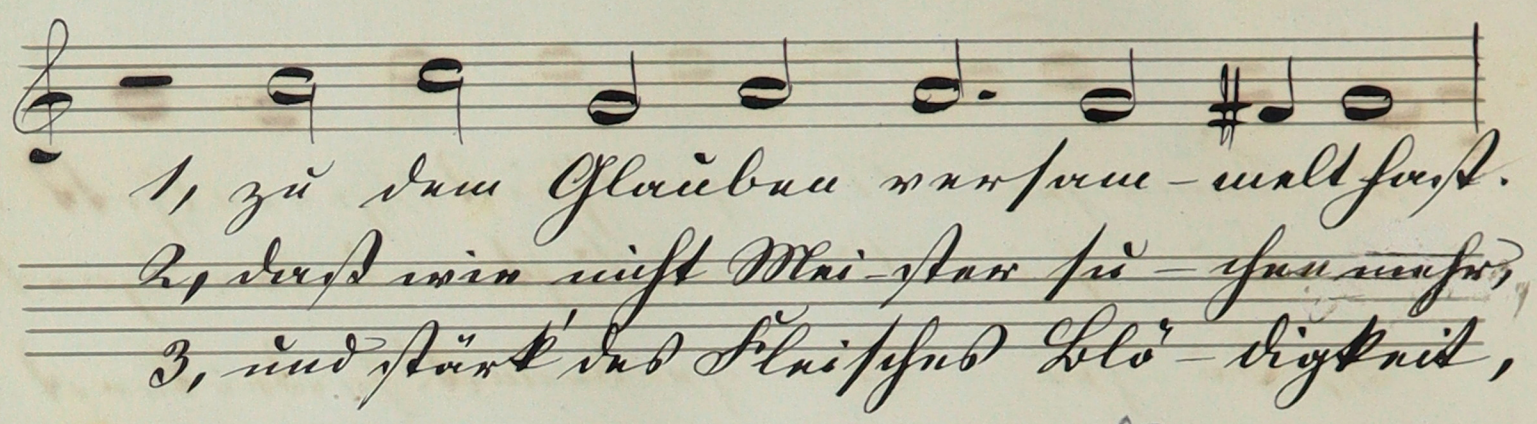 1, zu dem Glauben versam - melt hast.
2, daß wir nicht Mei - ster su - chen mehr,
3, und stärk' des Fleisches Blö - digkeit,